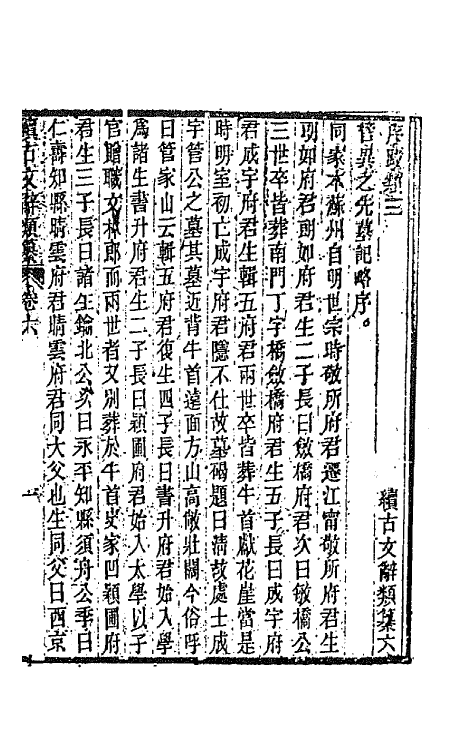 續古文辭類纂六
序跋類三
管異之先墓記略序。
同家本蘇州自明世宗時敬所府君遷江甯敬所府君生
玥如府君玥如府君生二子長曰斂橋府君次曰敏橋公
三世卒皆葬南門丁字橋斂橋府君生五子長曰成宇府
君成宇府君生輯五府君兩世卒皆葬牛首獻花崖當是
時明室初亡成宇府君隱不仕故墓碣題曰清故處士成
宇管公之墓其墓近背牛首遠面方山高敞壯闊今俗呼
曰管家山云輯五府君復生四子長曰書升府君始入學
爲諸生書升府君生二子長曰穎圃府君始入太學以子
官贈職文林郎而兩世者又別葬於牛首史家凹穎圃府
君生三子長曰諸生鑰北公次曰永平知縣須舟公季曰
仁壽知縣晴雲府君晴雲府君同大父也生同父曰西京
續古文辭類纂 卷六
一